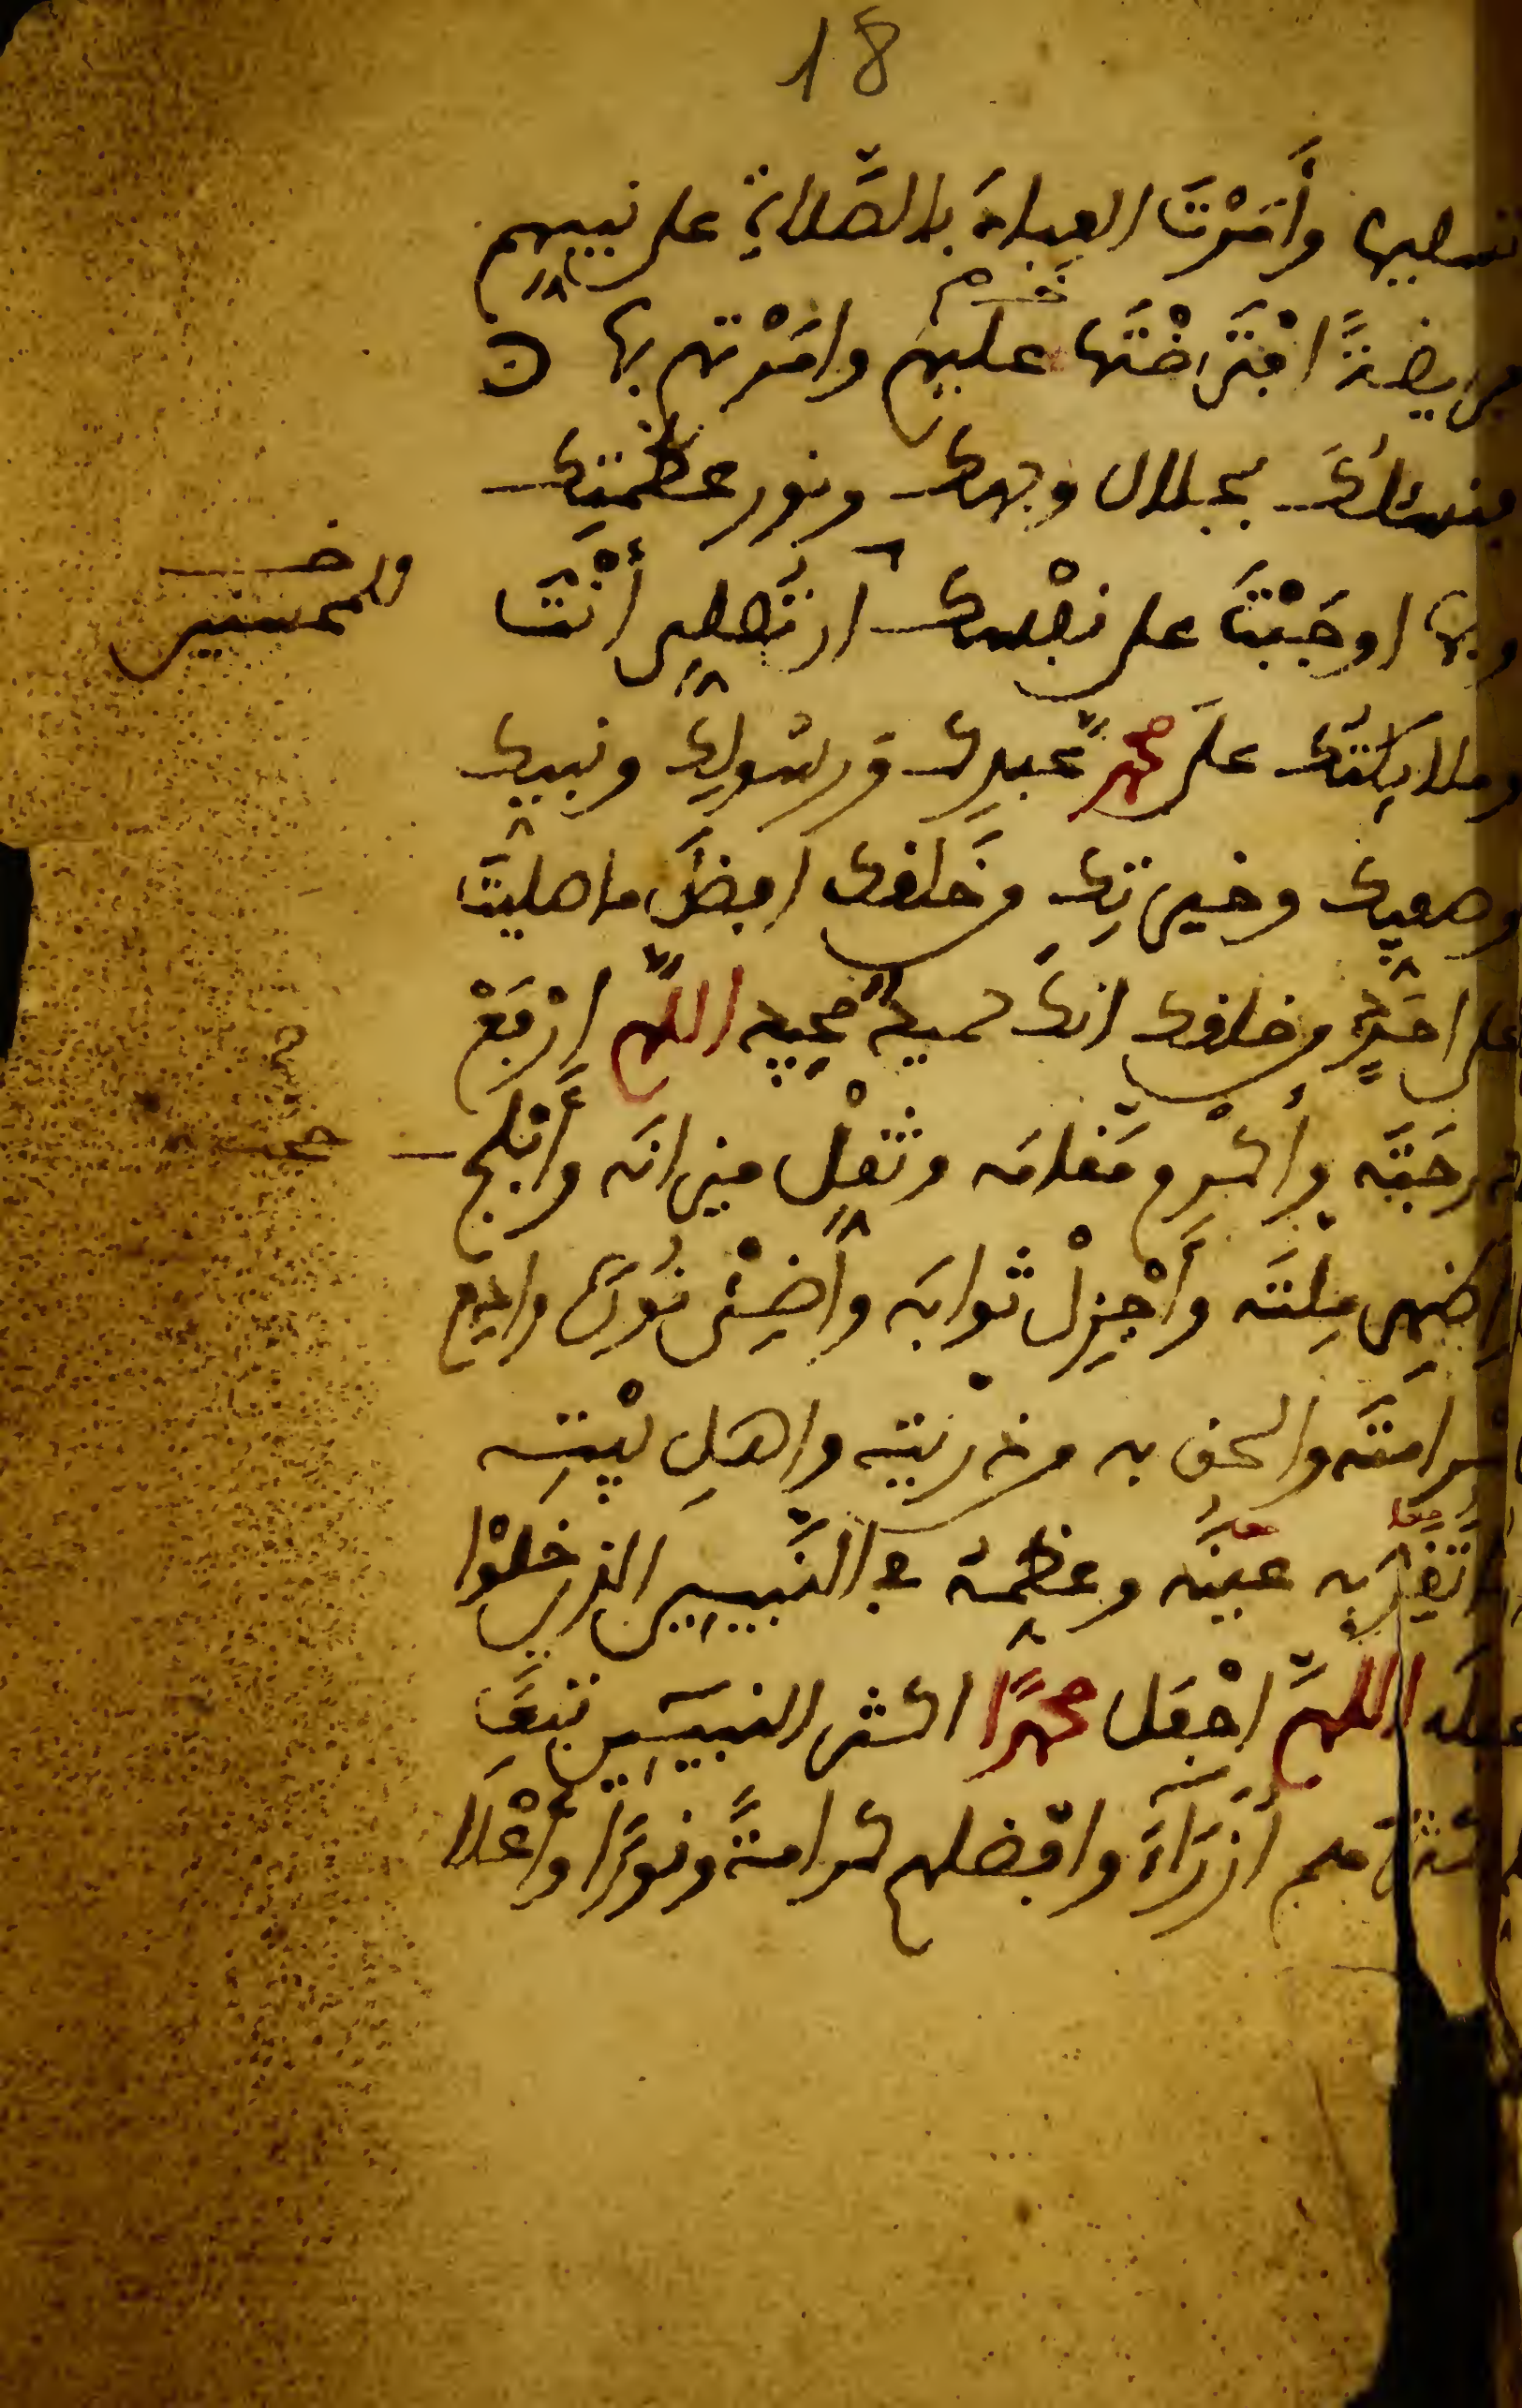 18
تسليما وأَمَرْتَ العبادَ بالصَّلاةِ على نبيهم
فريضةً افْتَرَضْتَها عليهم وامَرْتهم بها
فنسئلُكَ بجلال وجهك ونور عظمتِك
وبما اوجَبْتَ على نفسك ان تُصلى أنْتَ
وللمحسنين
وملايكتُك على محمدٍ عبدِك ورسُولِك ونبيك
وصفيك وخيرتِك من خَلقك افضلَ ما صليتَ
على احَدٍ من خلقك انكَ حميدٌ مجيد اللهمَّ ارْفَعْ
درجَتَه وأكْرم مَقامَه وثقلْ ميزانَه وأَبْلج
حجته
اظهر مِلتَه وأَجْزِلْ ثوابَه وأَضِئْ نُورَه وادِم
كرامَتَه والحق به من ذريتِه واهلِ بيْتِه
ما تَقِرُّ به عينُه وعظمه في النَّبيِين الذين خلوْا
قبله اللهمَّ اجْعَل محمدًا اكثر النبيين تبعًا
واكثرهم أُزَرَآءَ وافضلهم كرامةً ونورًا وأَعْلا